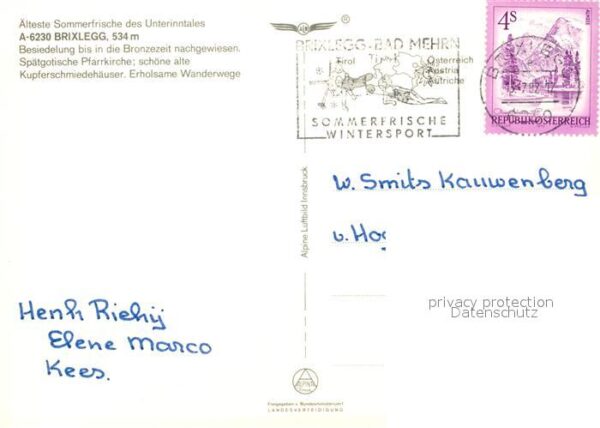 Älteste Sommerfrische des Unterinntales
A-6230 BRIXLEGG, 534 m
Besiedelung bis in die Bronzezeit nachgewiesen.
Spätgotische Pfarrkirche; schöne alte
Kupferschmiedehäuser. Erholsame Wanderwege
BRIXLEGG-BAD MEHRN
Tirol
Tyrol
Österreich
Austria
Autriche
SOMMERFRISCHE
WINTERSPORT
4S
REPUBLIK ÖSTERREICH
Alpine Luftbild Innsbruck
W. Smits Kauwenberg
v. Hog
privacy protection
Datenschutz
Henk Riekij
Elene Marco
Kees.
ALPINE
Freigegeben v. Bundesministerium f.
LANDESVERTEIDIGUNG